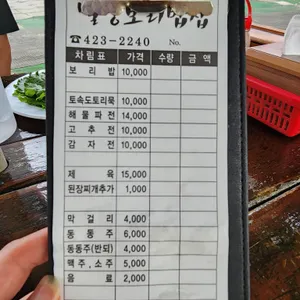 보리밥집
☎423-2240 No.
차림표 가격 수량 금액
보리밥 10,000
토속도토리묵 10,000
해물파전 14,000
고추전 10,000
감자전 10,000
제육 15,000
된장찌개추가 1,000
막걸리 4,000
동동주 6,000
동동주(반되) 4,000
맥주, 소주 5,000
음료 2,000